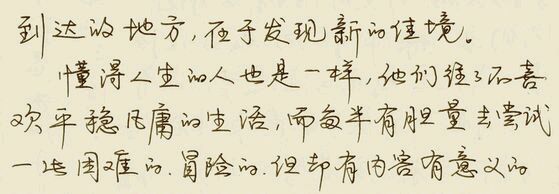 到达的地方,在于发现新的佳境。
懂得人生的人也是一样,他们往々不喜
欢平稳凡庸的生活,而每半有胆量去尝试
一些困难的.冒险的.但却有内容有意义的